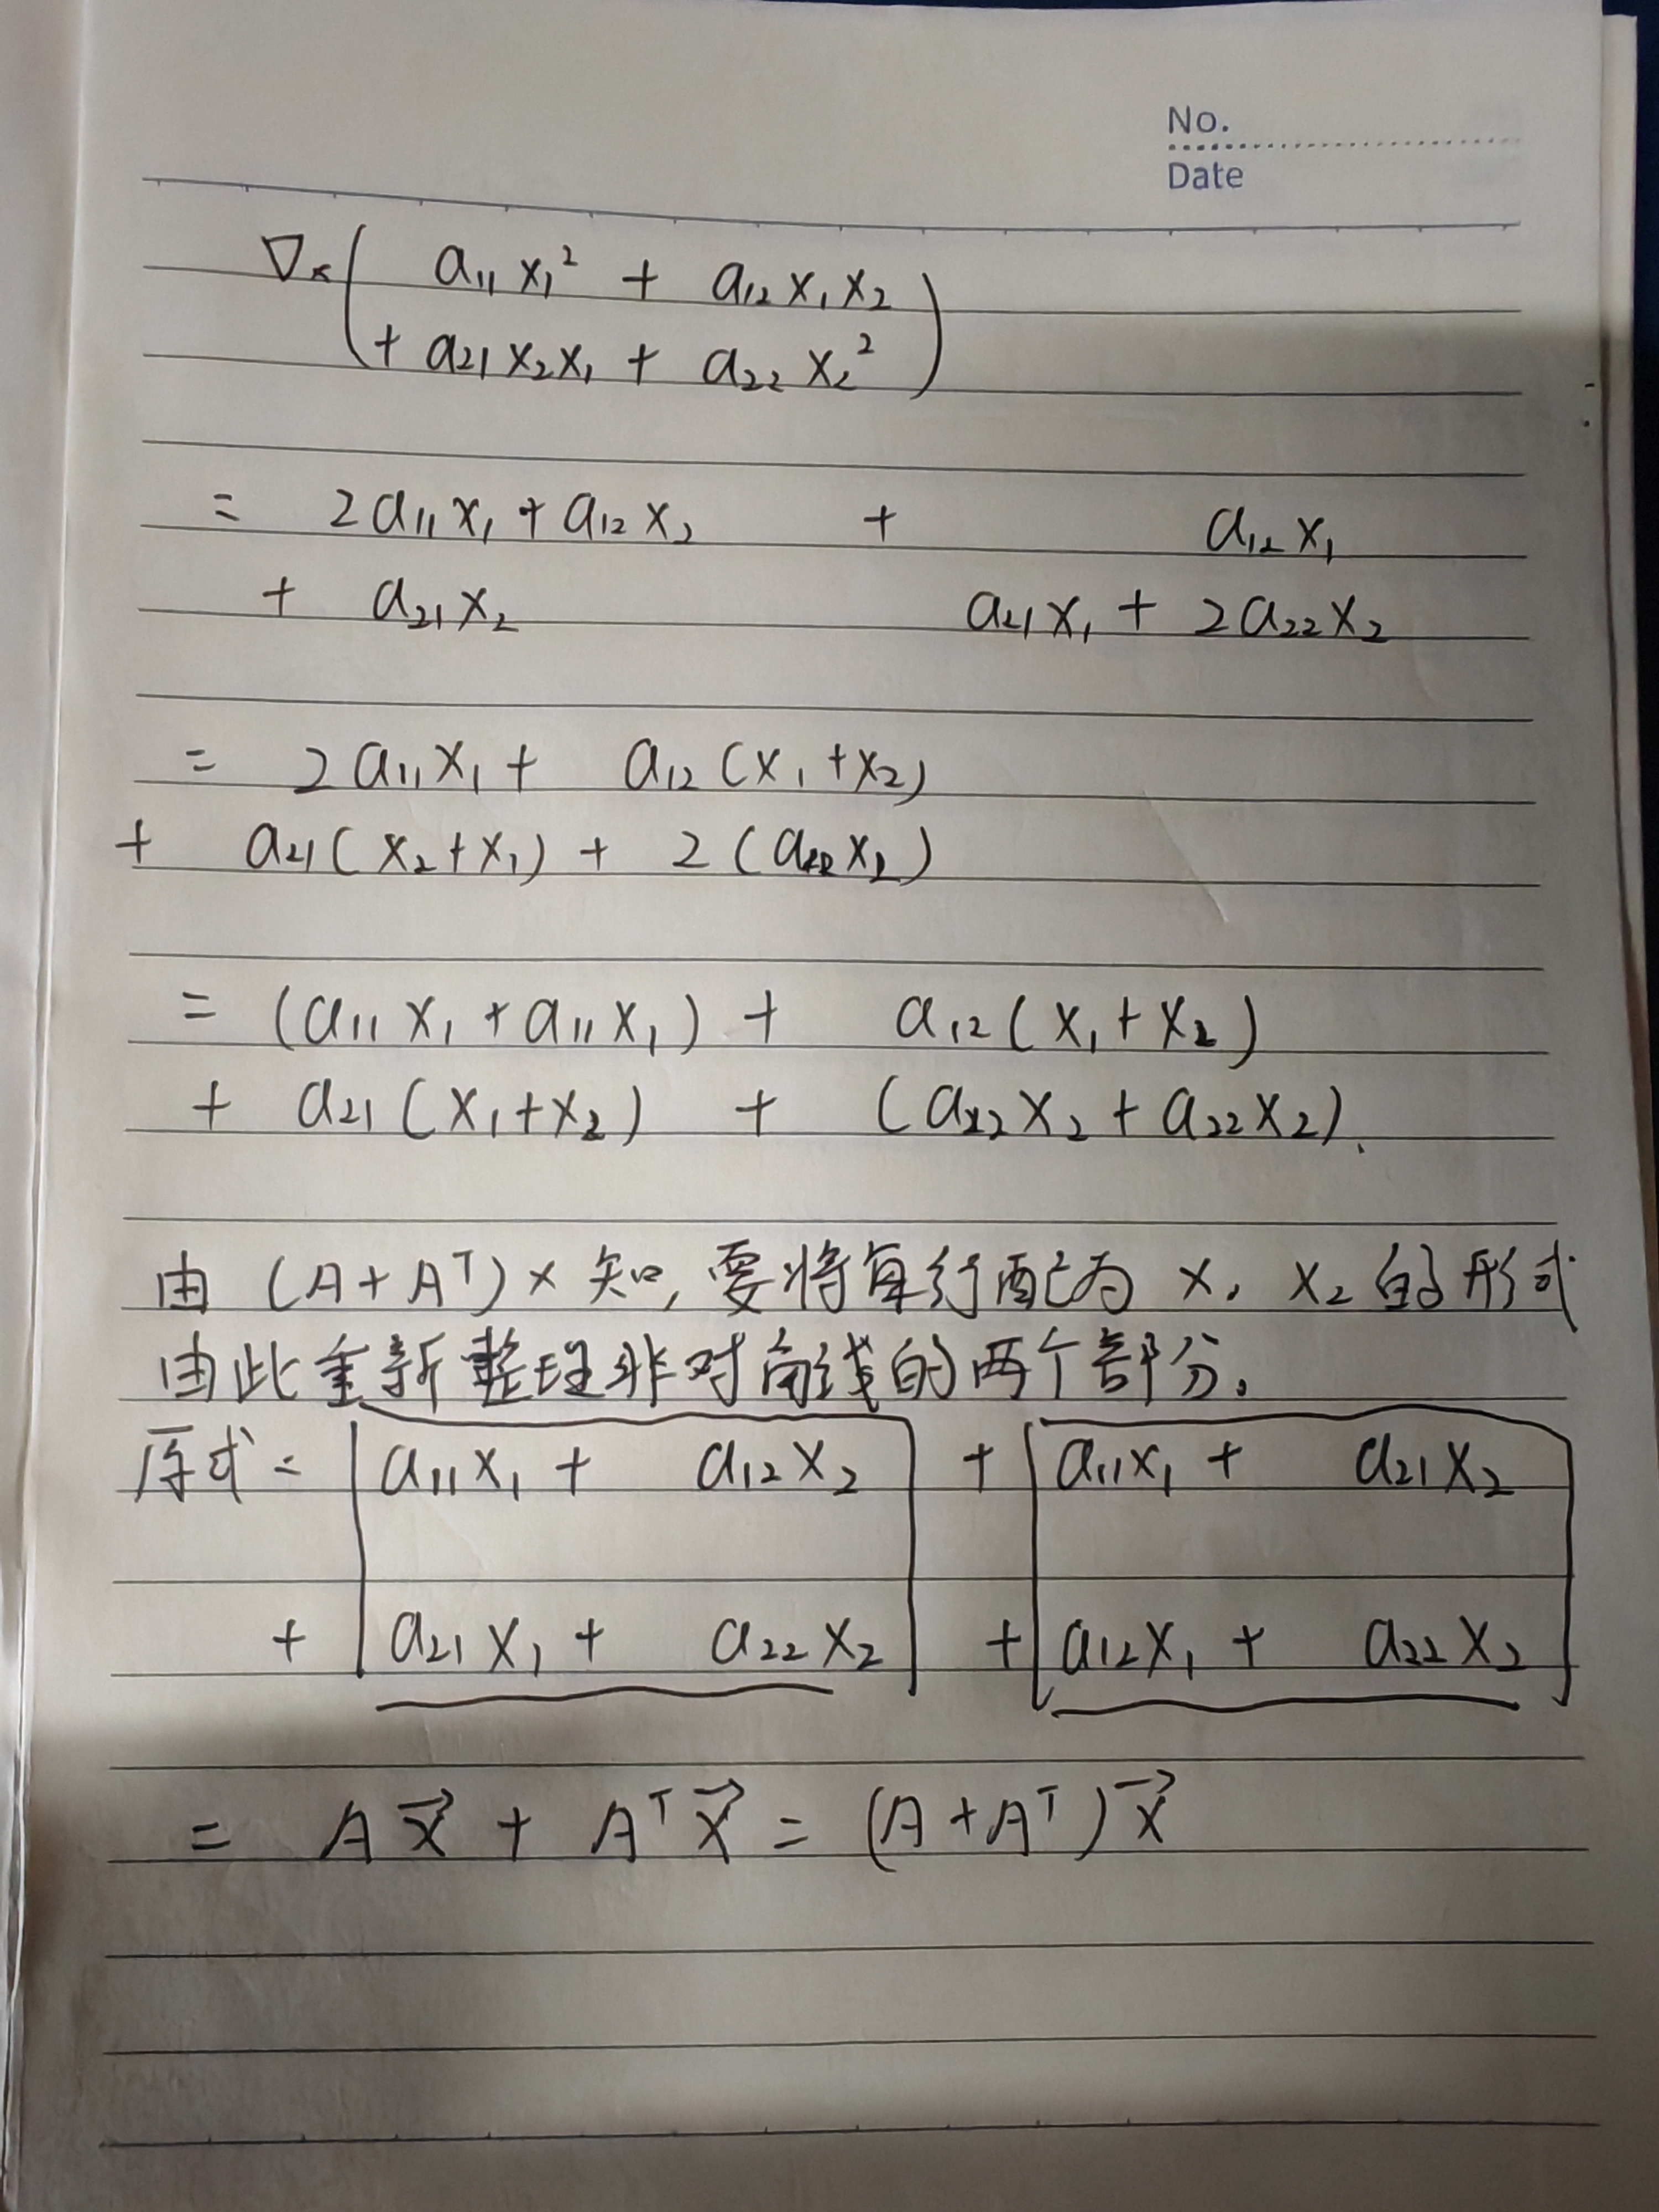 No.
Date
∇ₓ( a₁₁x₁² + a₁₂x₁x₂
+ a₂₁x₂x₁ + a₂₂x₂² )
= 2a₁₁x₁ + a₁₂x₂ + a₁₂x₁
+ a₂₁x₂ a₂₁x₁ + 2a₂₂x₂
= 2a₁₁x₁ + a₁₂(x₁+x₂)
+ a₂₁(x₂+x₁) + 2(a₂₂x₂)
= (a₁₁x₁ + a₁₁x₁) + a₁₂(x₁+x₂)
+ a₂₁(x₁+x₂) + (a₂₂x₂ + a₂₂x₂).
由 (A+Aᵀ)x 知, 要将每行配为 x₁ x₂ 的形式
由此重新整理非对角线的两个部分。
原式 = a₁₁x₁ + a₁₂x₂ + a₁₁x₁ + a₂₁x₂
+ a₂₁x₁ + a₂₂x₂ + a₁₂x₁ + a₂₂x₂
= Ax⃗ + Aᵀx⃗ = (A+Aᵀ)x⃗